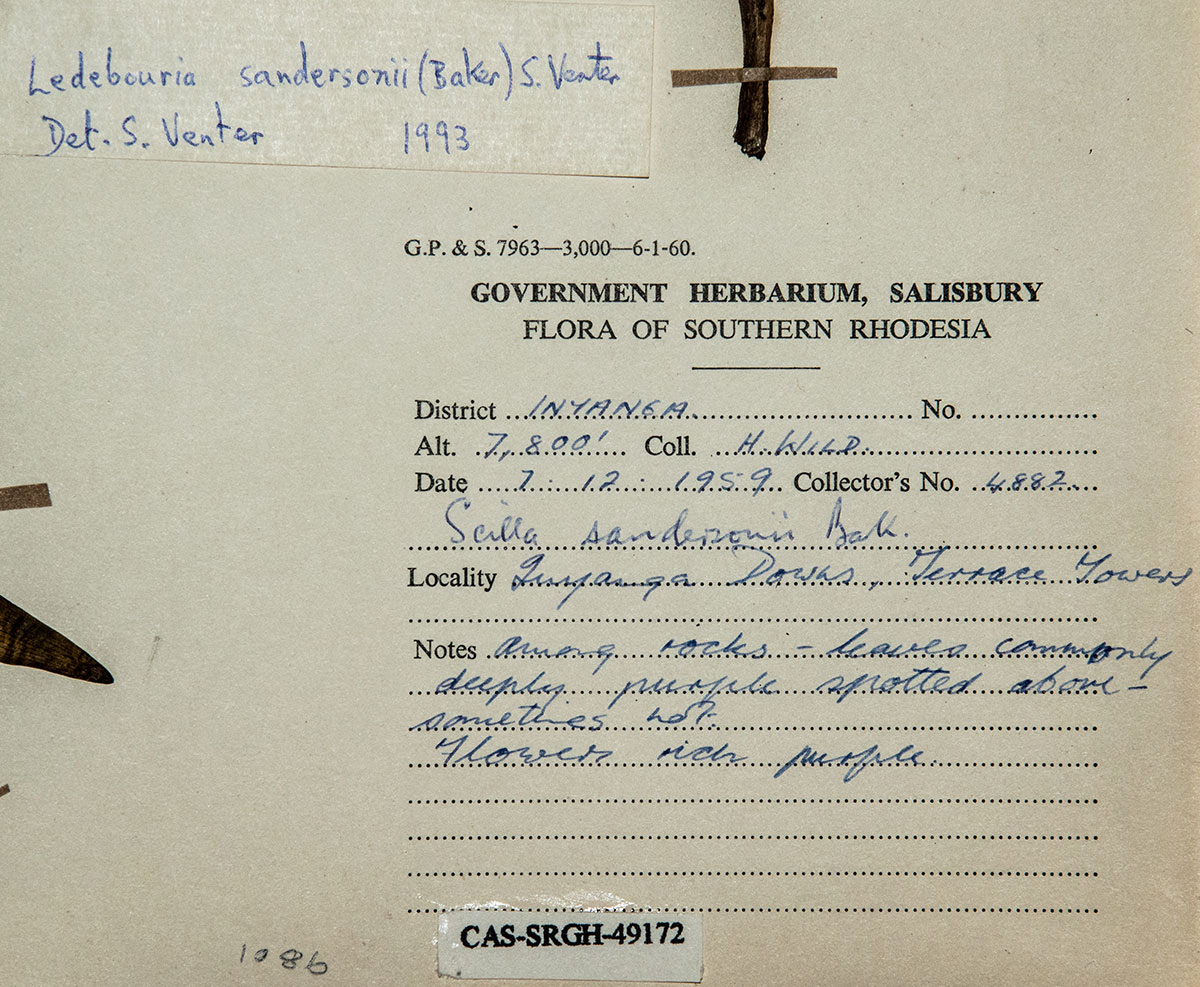 Ledebouria sandersonii (Baker) S. Venter
Det. S. Venter 1993
G.P. & S. 7963—3,000—6-1-60.
GOVERNMENT HERBARIUM, SALISBURY
FLORA OF SOUTHERN RHODESIA
District INYANGA No.
Alt. 7,800' Coll. H. WILD.
Date 7 : 12 : 1959 Collector's No. 4882
Scilla sandersonii Bak.
Locality Inyanga Downs, Terrace Towers
Notes Among rocks – leaves commonly
deeply purple spotted above –
sometimes not.
Flowers rich purple.
CAS-SRGH-49172
1086